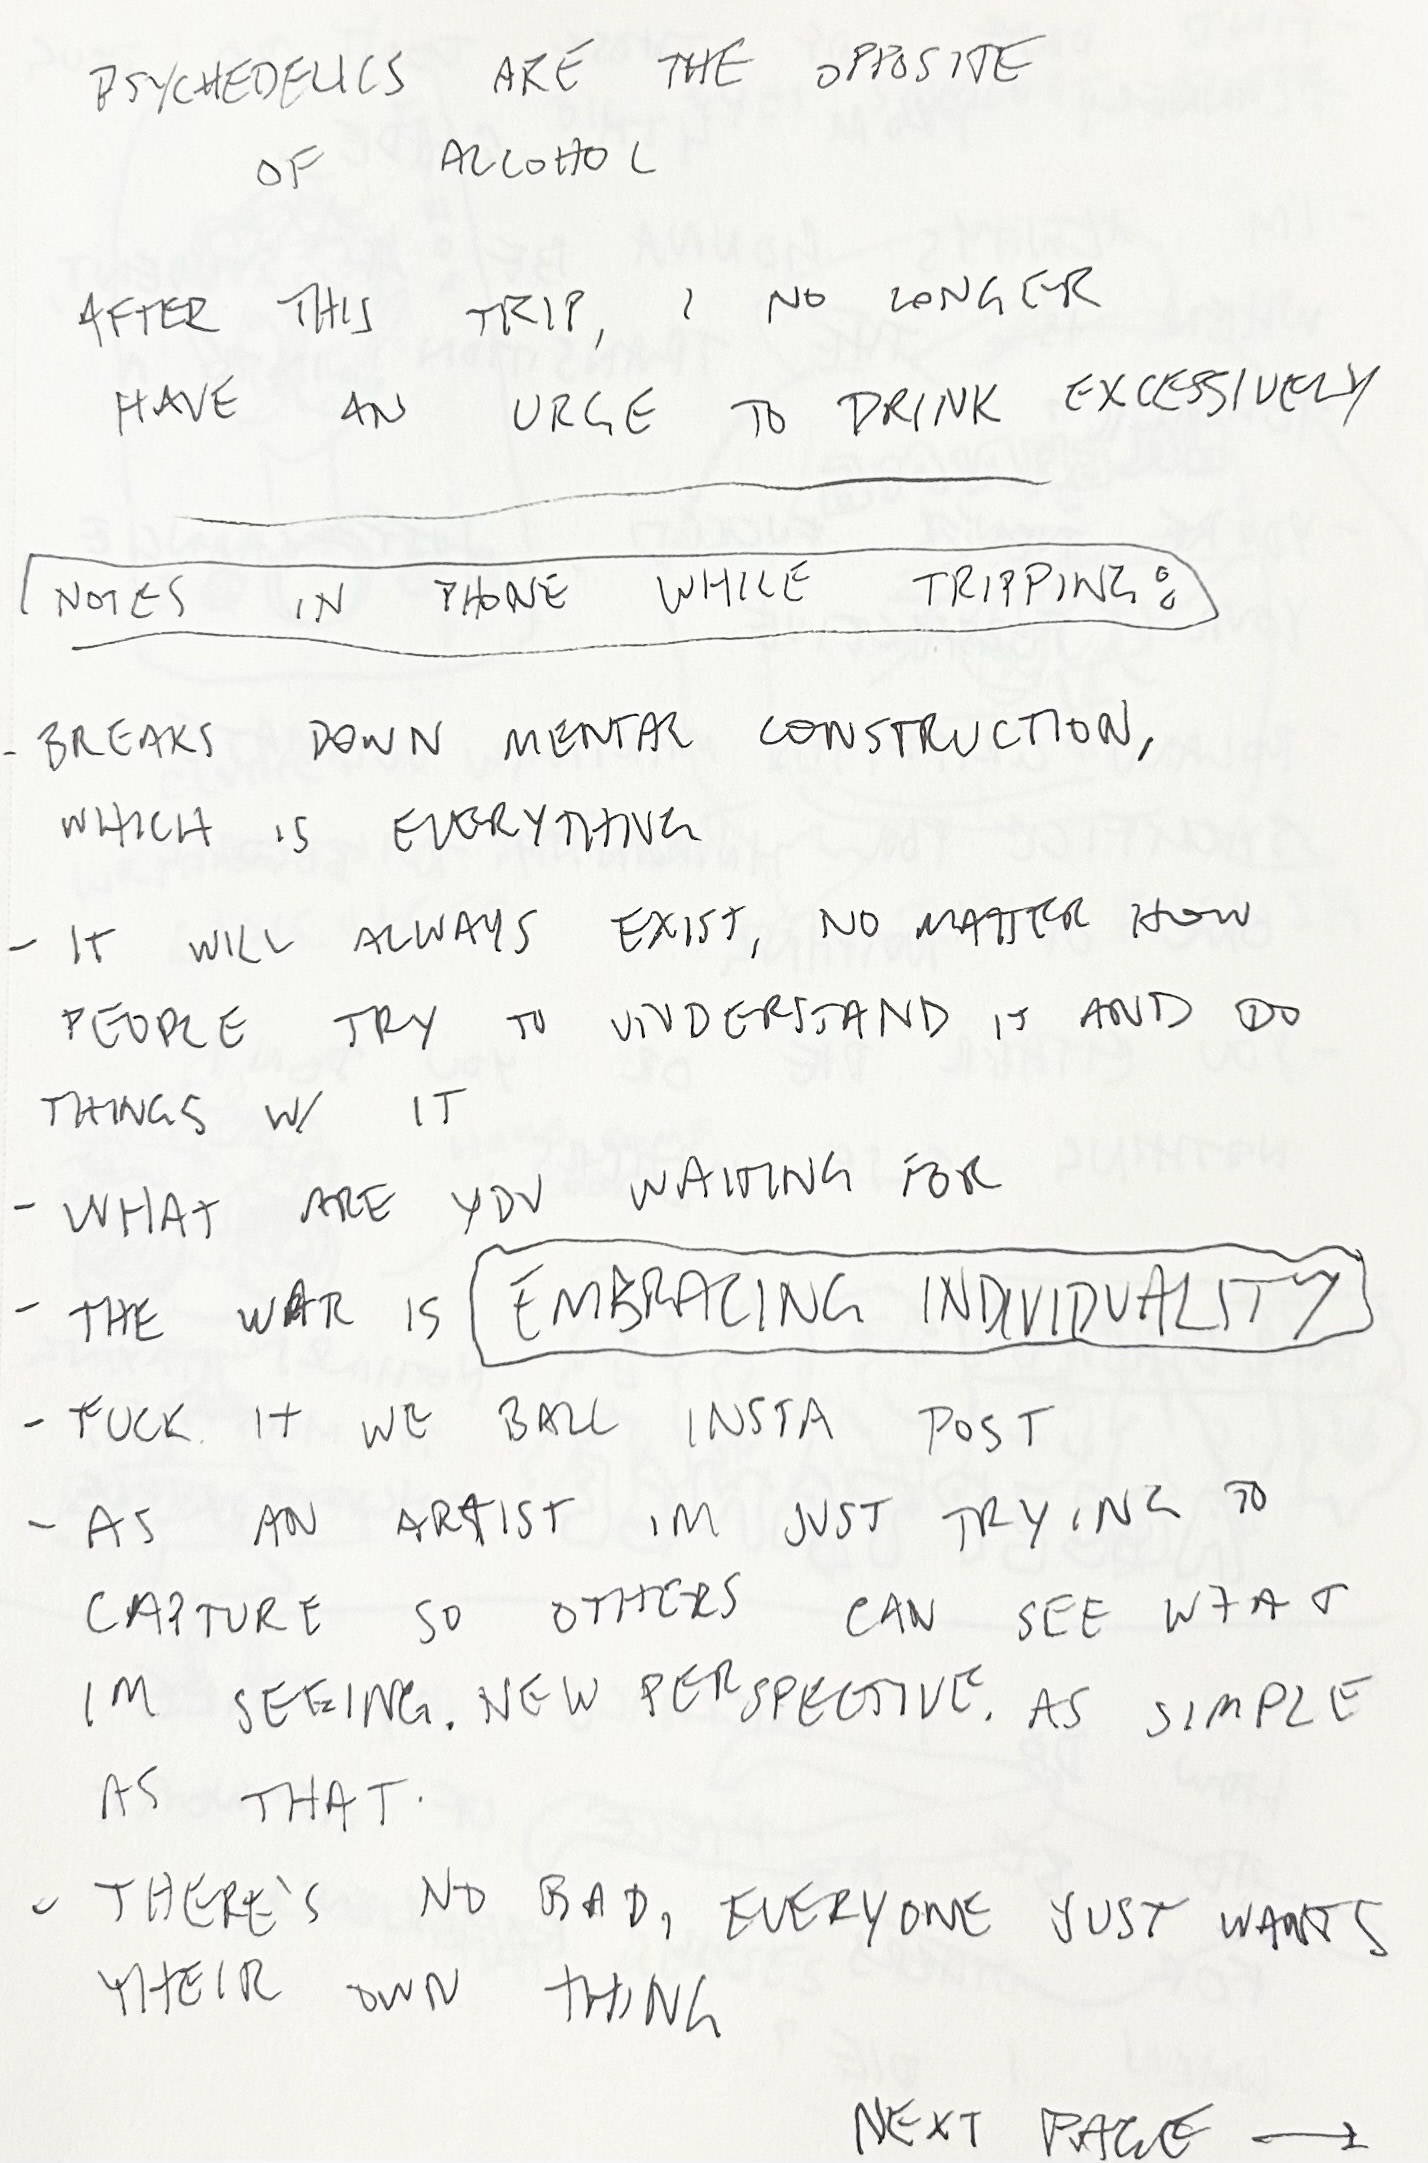 PSYCHEDELICS ARE THE OPPOSITE
OF ALCOHOL
AFTER THIS TRIP, I NO LONGER
HAVE AN URGE TO DRINK EXCESSIVELY
NOTES IN PHONE WHILE TRIPPING:
- BREAKS DOWN MENTAL CONSTRUCTION,
WHICH IS EVERYTHING
- IT WILL ALWAYS EXIST, NO MATTER HOW
PEOPLE TRY TO UNDERSTAND IT AND DO
THINGS W/ IT
- WHAT ARE YOU WAITING FOR
- THE WAR IS EMBRACING INDIVIDUALITY
- FUCK IT WE BALL INSTA POST
- AS AN ARTIST IM JUST TRYING TO
CAPTURE SO OTHERS CAN SEE WHAT
IM SEEING. NEW PERSPECTIVE. AS SIMPLE
AS THAT.
- THERE'S NO BAD, EVERYONE JUST WANTS
THEIR OWN THING
NEXT PAGE →